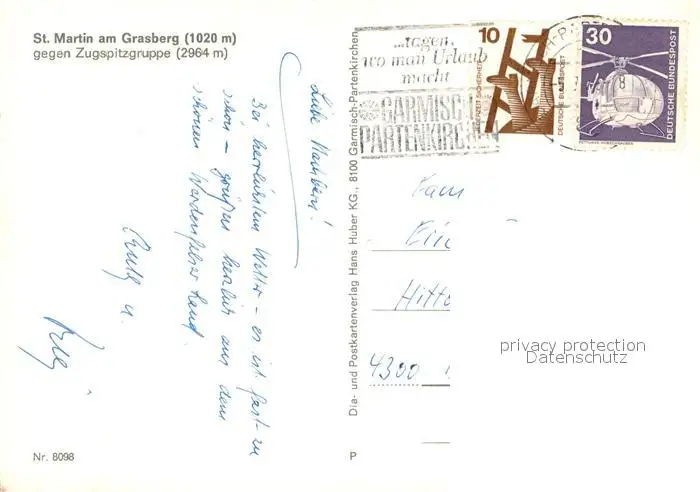 St. Martin am Grasberg (1020 m)
gegen Zugspitzgruppe (2964 m)
Liebe Nachbarn!
Bei herrlichstem Wetter – es ist fast zu
schön – grüßen herzlich aus dem
schönen Werdenfelser Land
Ruth u.
Nr. 8098
Dia- und Postkartenverlag Hans Huber KG., 8100 Garmisch-Partenkirchen
P
...tagen,
wo man Urlaub
macht
GARMISCH
PARTENKIRCHEN
10
JEDERZEIT SICHERHEIT
DEUTSCHE BUNDESPOST
30
DEUTSCHE BUNDESPOST
Fam
4300
privacy protection
Datenschutz